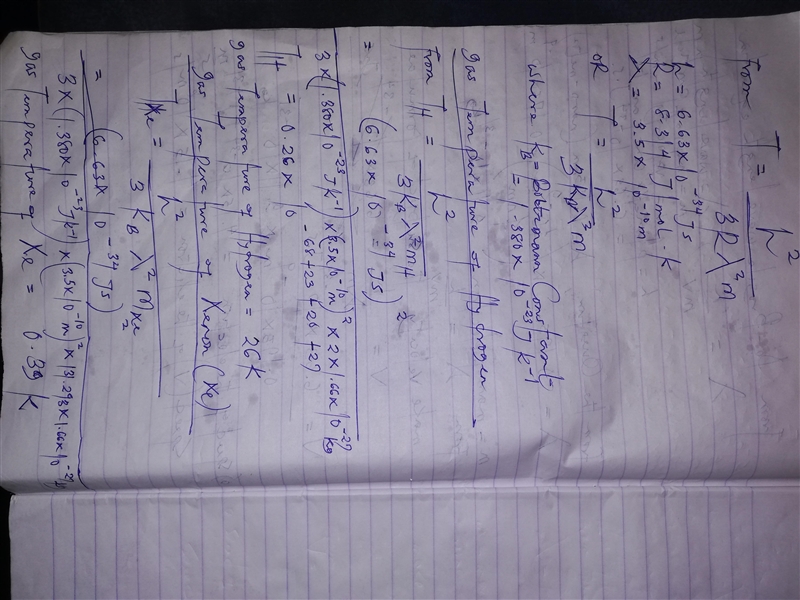 from T = h²
3Rλ²m
h = 6.63 x 10⁻³⁴ Js
R = 8.314 J/mol.K
λ = 3.5 x 10⁻¹⁰ m
OR T = h²
3K_Bλ²m
where K_B = Boltzmann Constant
= 1.380 x 10⁻²³ J K⁻¹
gas Temperature of Hydrogen
from T_H = h²
3K_Bλ²m_H
= (6.63 x 10⁻³⁴ Js)²
3 x (1.380 x 10⁻²³ JK⁻¹) x (3.5x10⁻¹⁰m)² x 2 x 1.66 x 10⁻²⁷ kg
T_H = 0.26 x 10⁻⁶⁸⁺²³⁺²⁰⁺²⁷
gas Temperature of Hydrogen = 26K
gas Temperature of Xenon (Xe)
T_Xe = h²
3 K_B λ² m_Xe
= (6.63 x 10⁻³⁴ Js)²
3 x (1.380 x 10⁻²³ JK⁻¹) x (3.5x10⁻¹⁰m)² x 131.293 x 1.66 x 10⁻²⁷
gas Temperature of Xe = 0.39 K